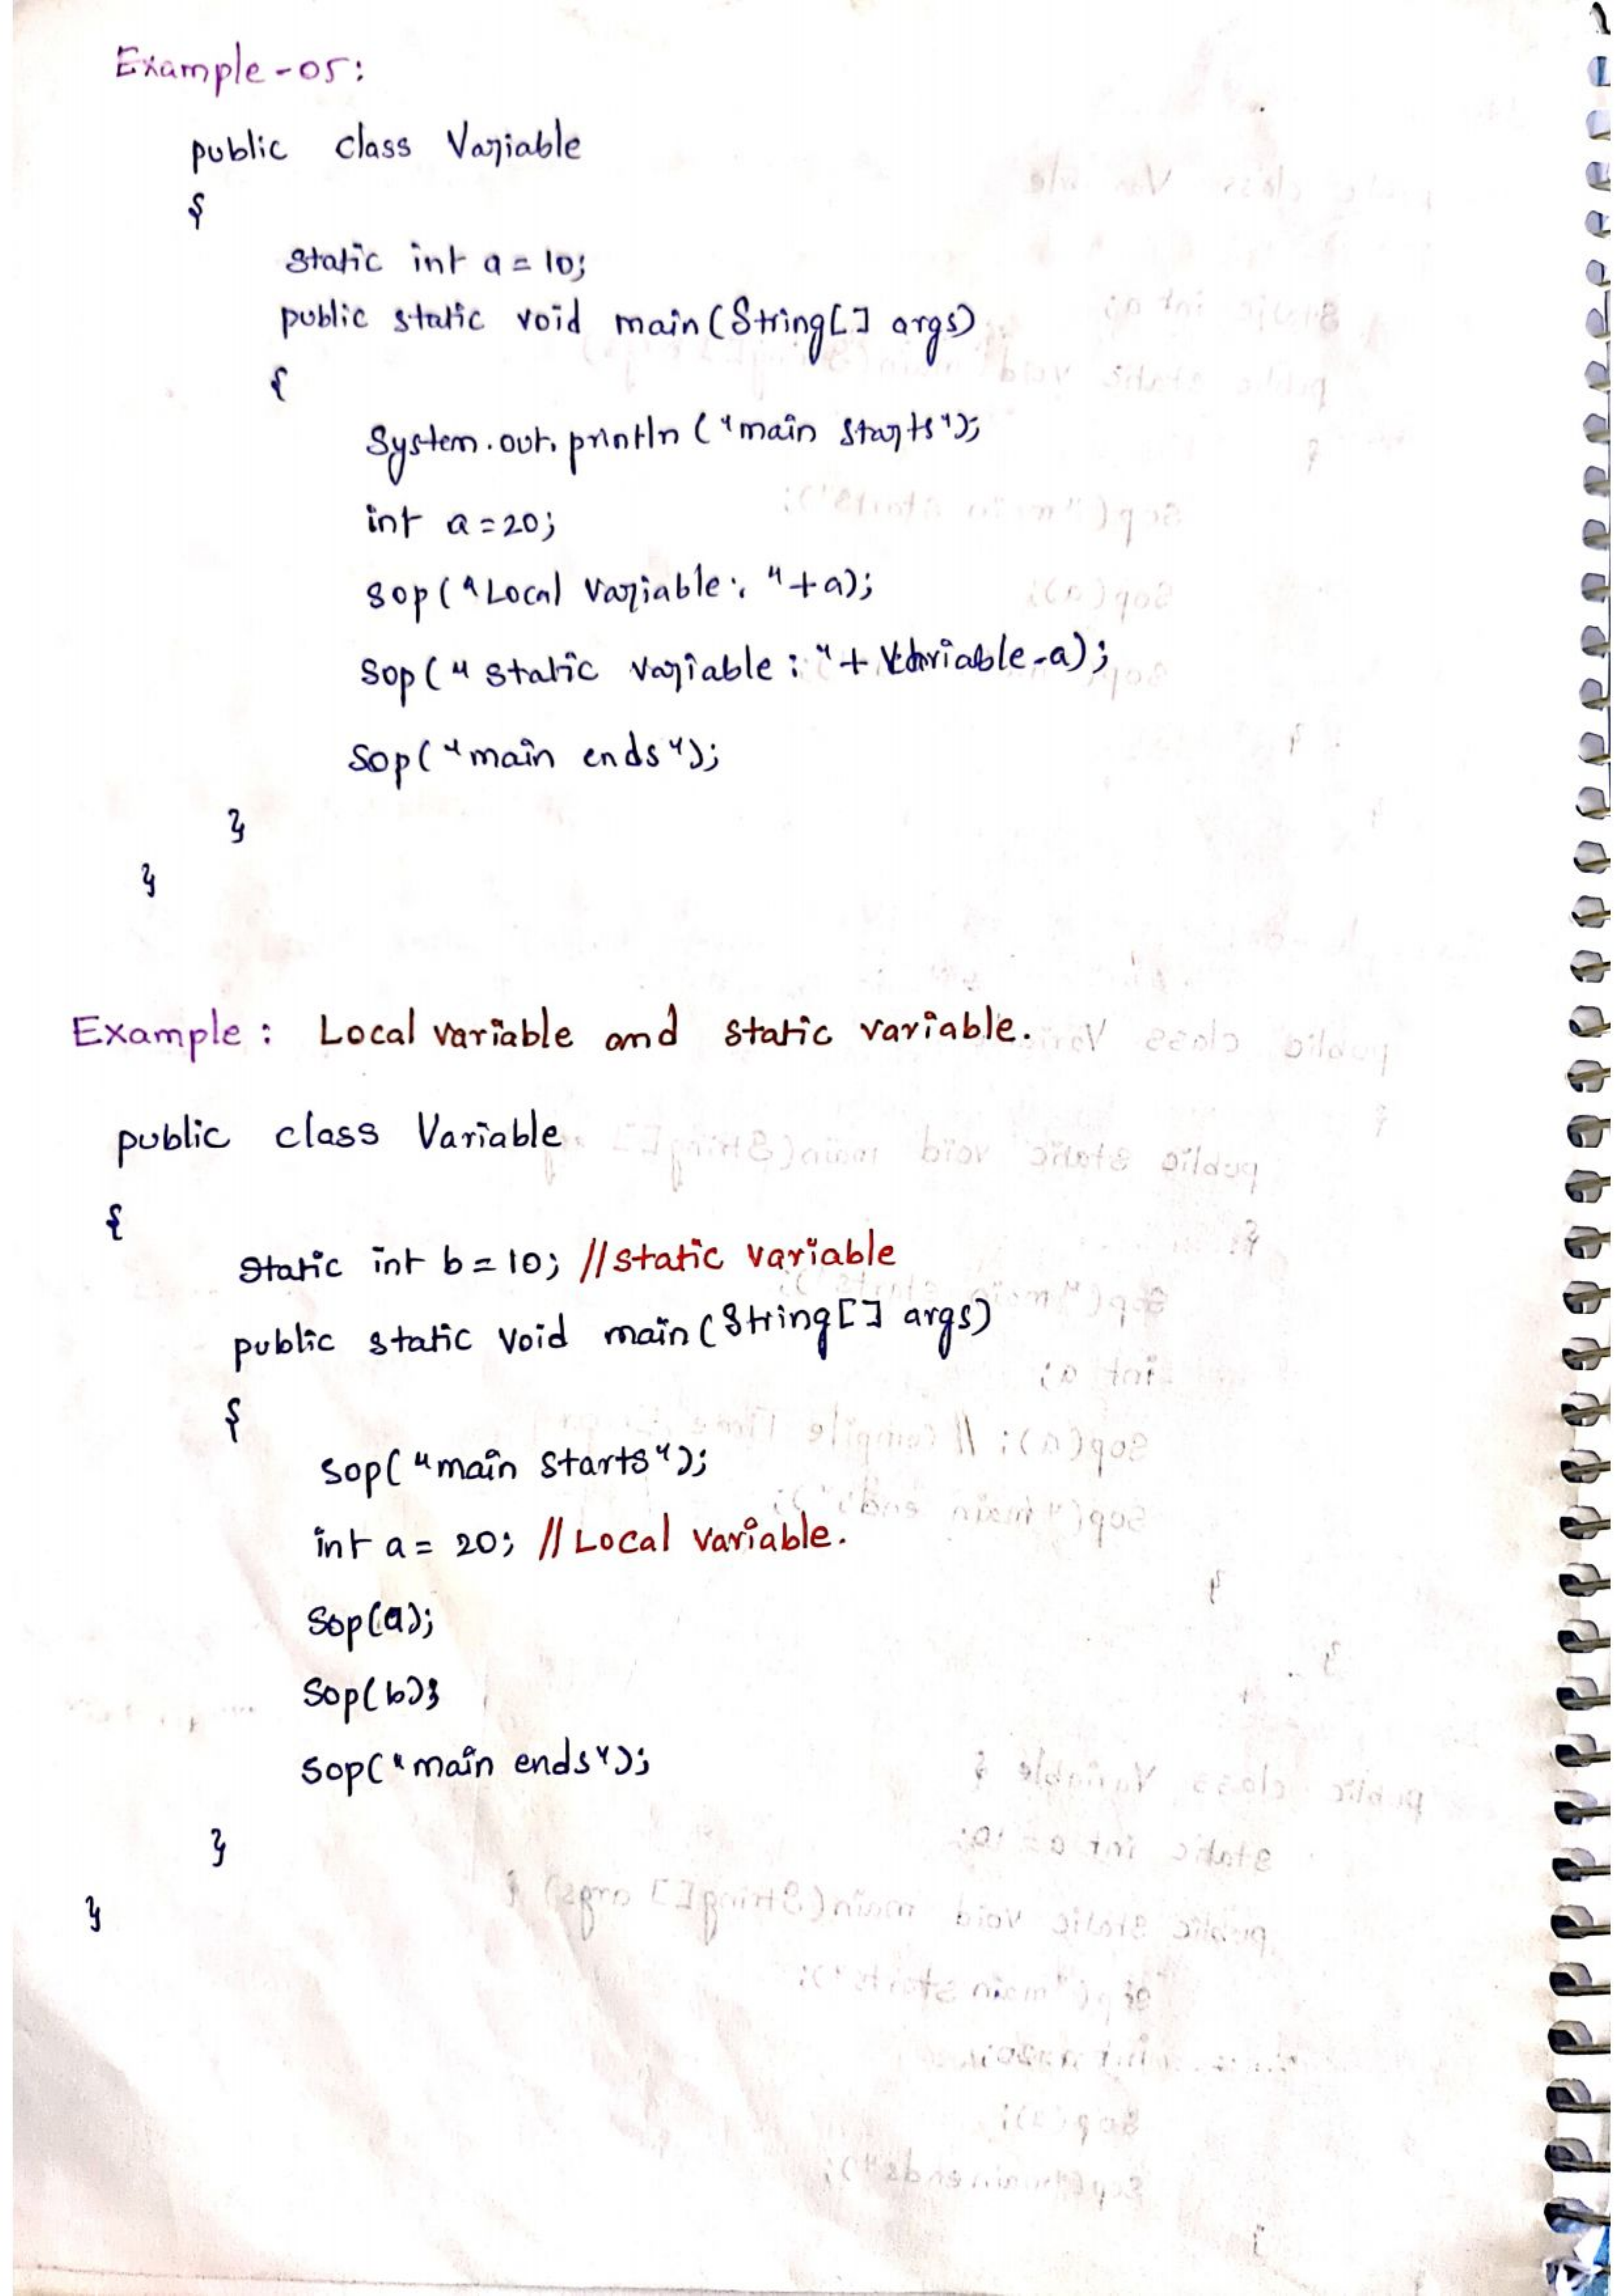 Example-05:
public class Variable
{
static int a = 10;
public static void main(String[] args)
{
System.out.println("main starts");
int a=20;
sop("Local variable: "+a);
sop("static variable: "+ Variable.a);
sop("main ends");
}
}
Example: Local variable and static variable.
public class Variable
{
static int b = 10; //static variable
public static void main(String[] args)
{
sop("main starts");
int a = 20; //Local variable.
sop(a);
sop(b);
sop("main ends");
}
}